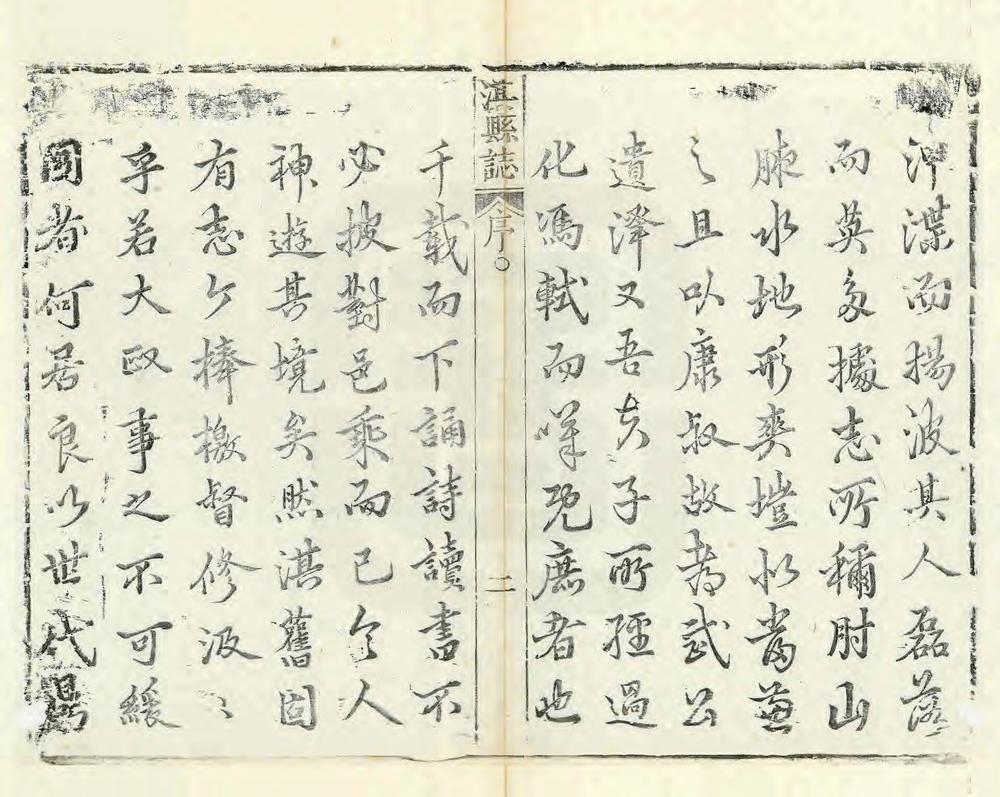 泙渫而揚波其人磊落
而英多據志所稱肘山
腋水地形爽塏似當兼
之且以康叔故都武公
遺澤又吾夫子所經過
化馮軾而嘆既庶者也
淇縣誌 序 二
千載而下誦詩讀書不
必披對邑乘而已令人
神遊其境矣然淇舊固
有志今捧檄督修汲〻
乎若大政事之不可緩
圖者何居良以世代